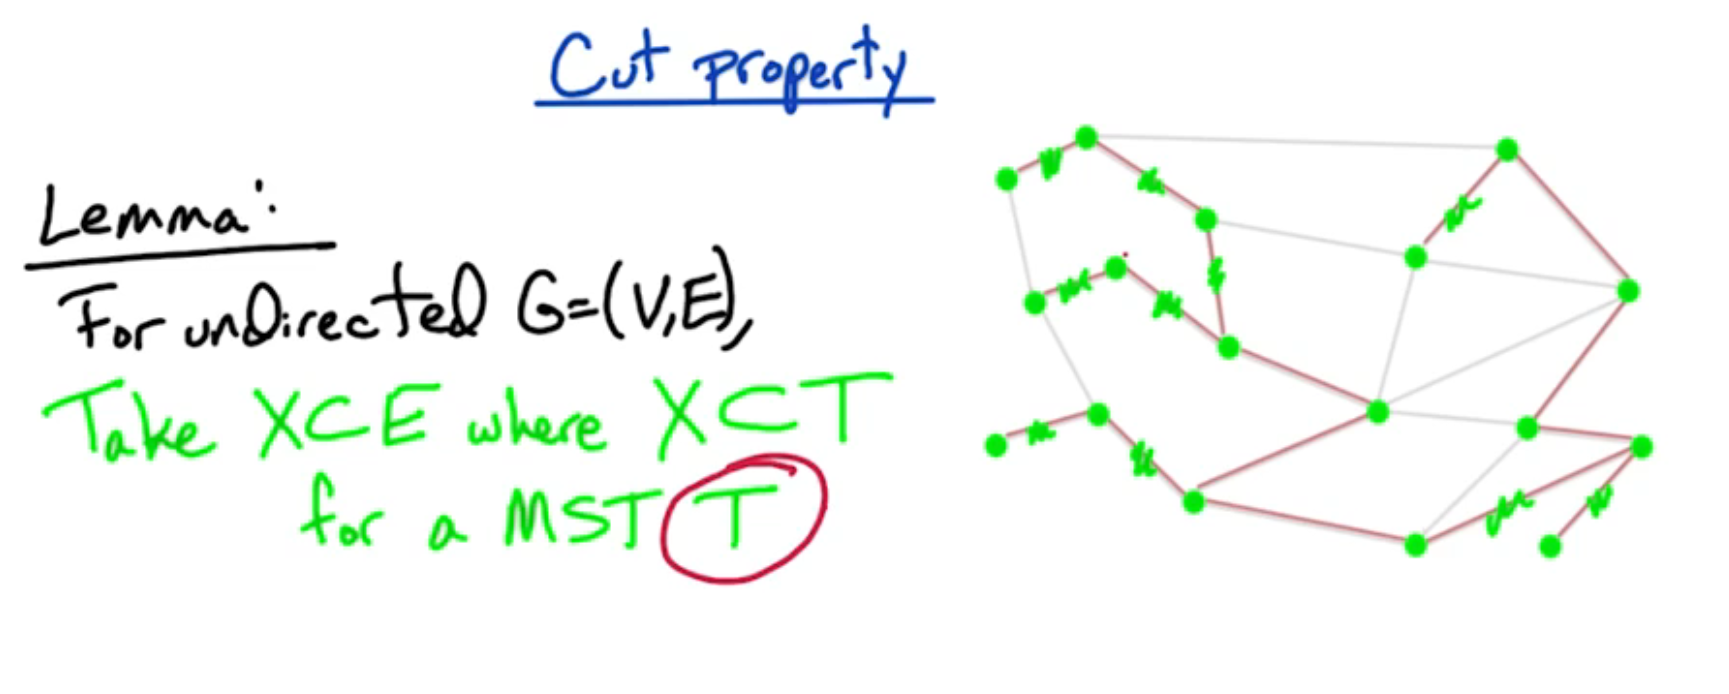 Cut property
Lemma:
For undirected G=(V,E),
Take X⊂E where X⊂T
for a MST T